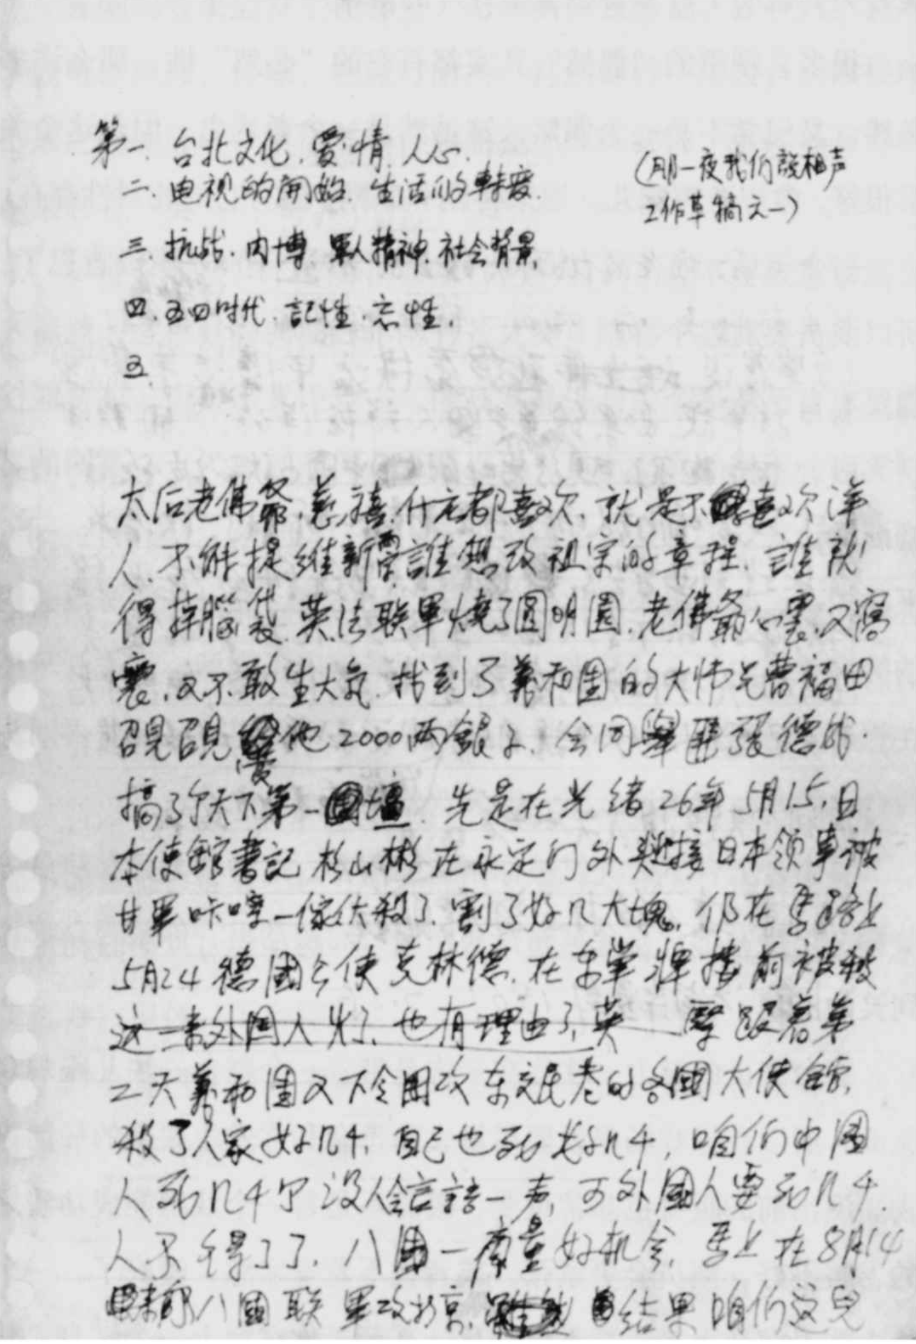 第一. 台北文化. 爱情. 人心.
二. 电视的開始. 生活的轉变
三. 抗战. 内博. 軍人精神. 社会背景
四. 五四时代. 記性. 忘性.
五.
(那一夜我们說相声
工作草稿之一)
太后老佛爺. 慈禧. 什么都喜欢. 就是不喜欢洋
人. 不能提維新 誰想改祖宗的章程. 誰就
得掉腦袋. 英法联軍燒了圆明園. 老佛爺心裏又窩
囊. 又不敢生大气. 找到了義和团的大师兄曹福田
給他2000两銀子. 会同 張德成.
搞了个天下第一壇 先是在光绪26年5月15. 日
本使館書記 杉山彬 在永定门外 迎接日本领事被
甘軍咔嚓一傢伙殺了. 割了好几大塊. 仍在馬路上
5月24 德國公使克林德. 在东單牌楼前被殺
这一来外国人火了. 也有理由了. 英 跟着第
二天義和團又下令围攻东交民巷的各國大使館.
殺了人家好几十. 自己也死光好几千. 咱们中國
人死几千个没人会言語一声. 可外國人要死几个
人不得了了. 八國一商量好机会. 馬上在8月14
八國联軍攻北京. 结果咱们这兒